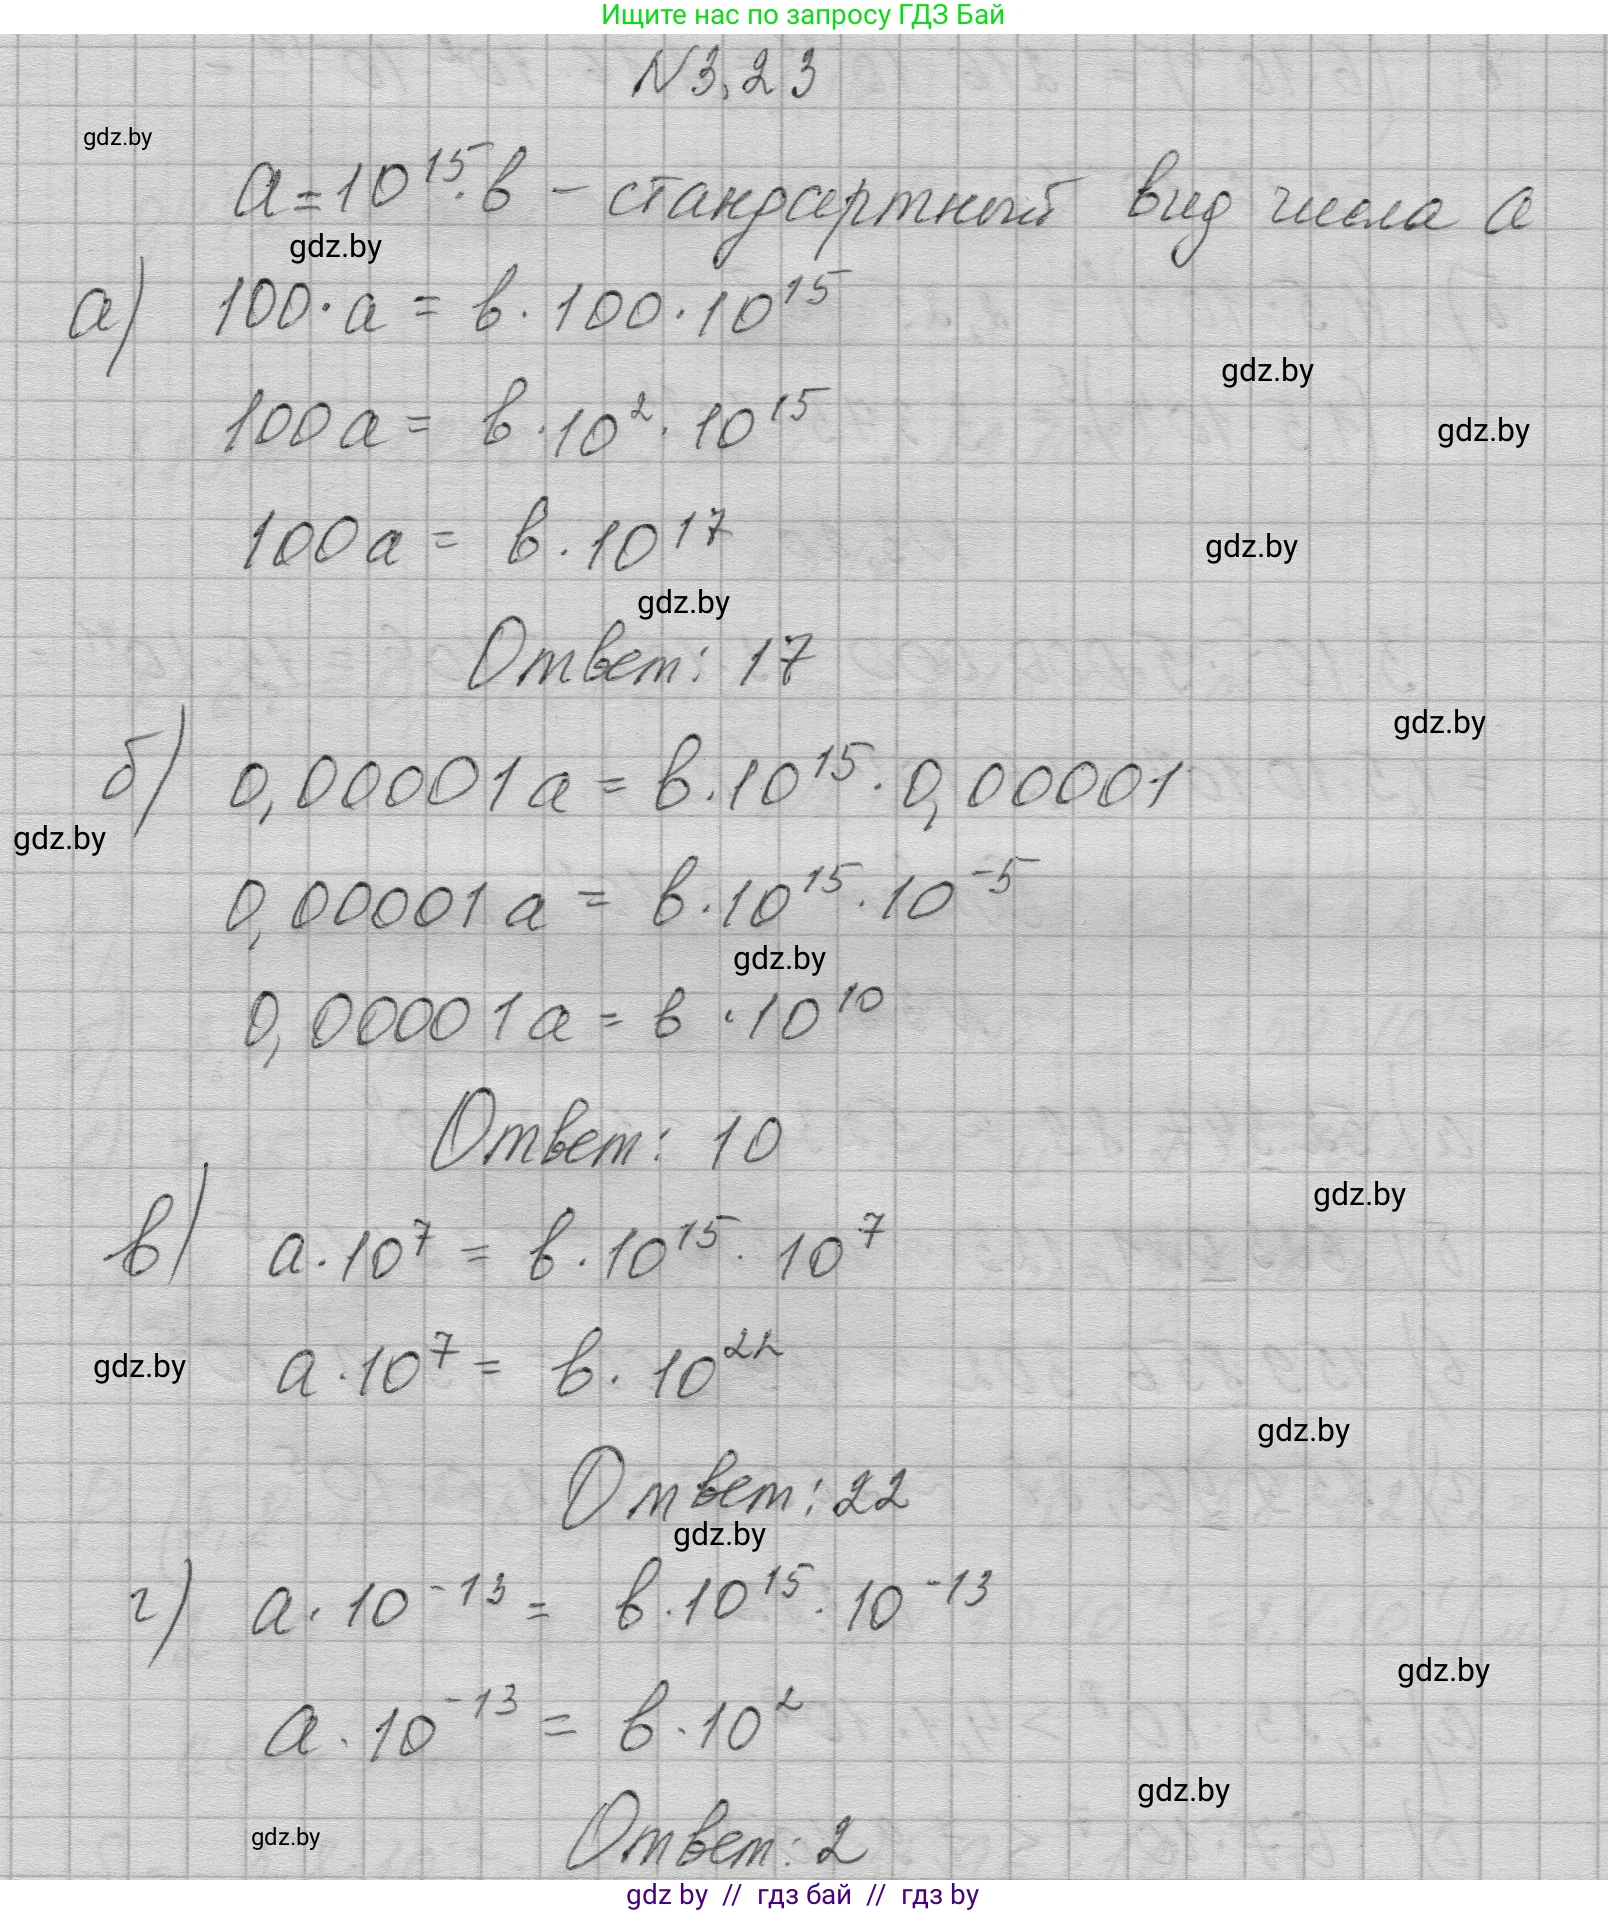 Ищите нас по запросу ГДЗ Бай
N3.23
gdz.by
a = 10^15 · b – стандартный вид числа a
gdz.by
а) 100 · a = b · 100 · 10^15
gdz.by
100a = b · 10^2 · 10^15
gdz.by
100a = b · 10^17
gdz.by
gdz.by
Ответ: 17
gdz.by
б) 0,00001a = b · 10^15 · 0,00001
gdz.by
0,00001a = b · 10^15 · 10^-5
gdz.by
0,00001a = b · 10^10
Ответ: 10
gdz.by
в) a · 10^7 = b · 10^15 · 10^7
gdz.by
a · 10^7 = b · 10^22
gdz.by
Ответ: 22
gdz.by
г) a · 10^-13 = b · 10^15 · 10^-13
gdz.by
a · 10^-13 = b · 10^2
gdz.by
gdz.by
Ответ: 2
gdz by // гдз бай // гдз by